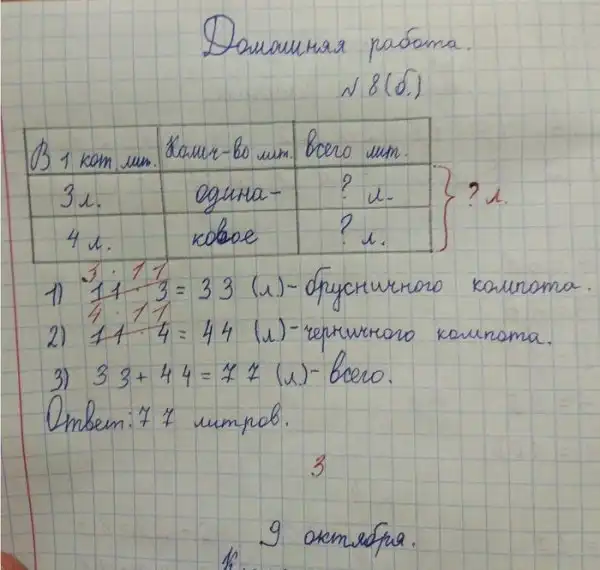 Домашняя работа.
№ 8 (б.)
В 1 кот. лит. Колич-во лит. всего лит.
3 л. одина- ? л.
4 л. ковое ? л.
? л.
3 · 11
1) 11 · 3 = 33 (л) - брусничного компота.
4 · 11
2) 11 · 4 = 44 (л) - черничного компота.
3) 33 + 44 = 77 (л) - всего.
Ответ: 77 литров.
3
9 октября.